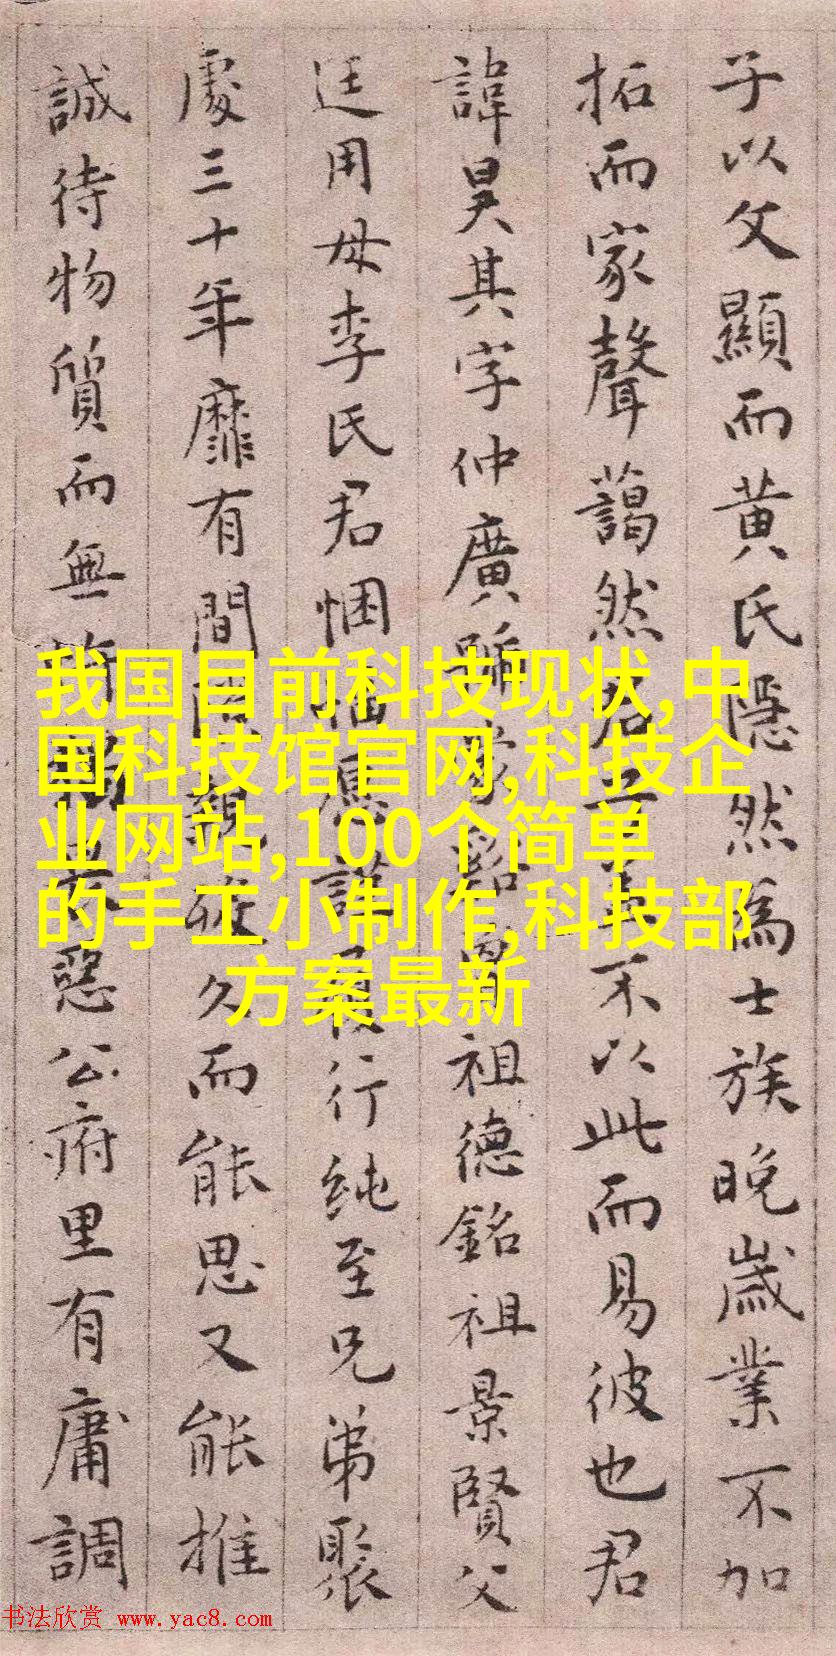 子以父顯而黄氏隱然為士族晚歲業不加
拓而家聲藹然君不以此而易彼也君
諱昊其字仲廣號家谿曾祖德銘祖景賢父
廷用母李氏君悃愊慿謹有行純至兄弟聚
處三十年靡有間久而能思又能推
誠待物質而無惡公府里有庸調
我国目前科技现状,中
国科技馆官网,科技企
业网站,100个简单
的手工小制作,科技部
方案最新
书法欣赏 www.yac8.com